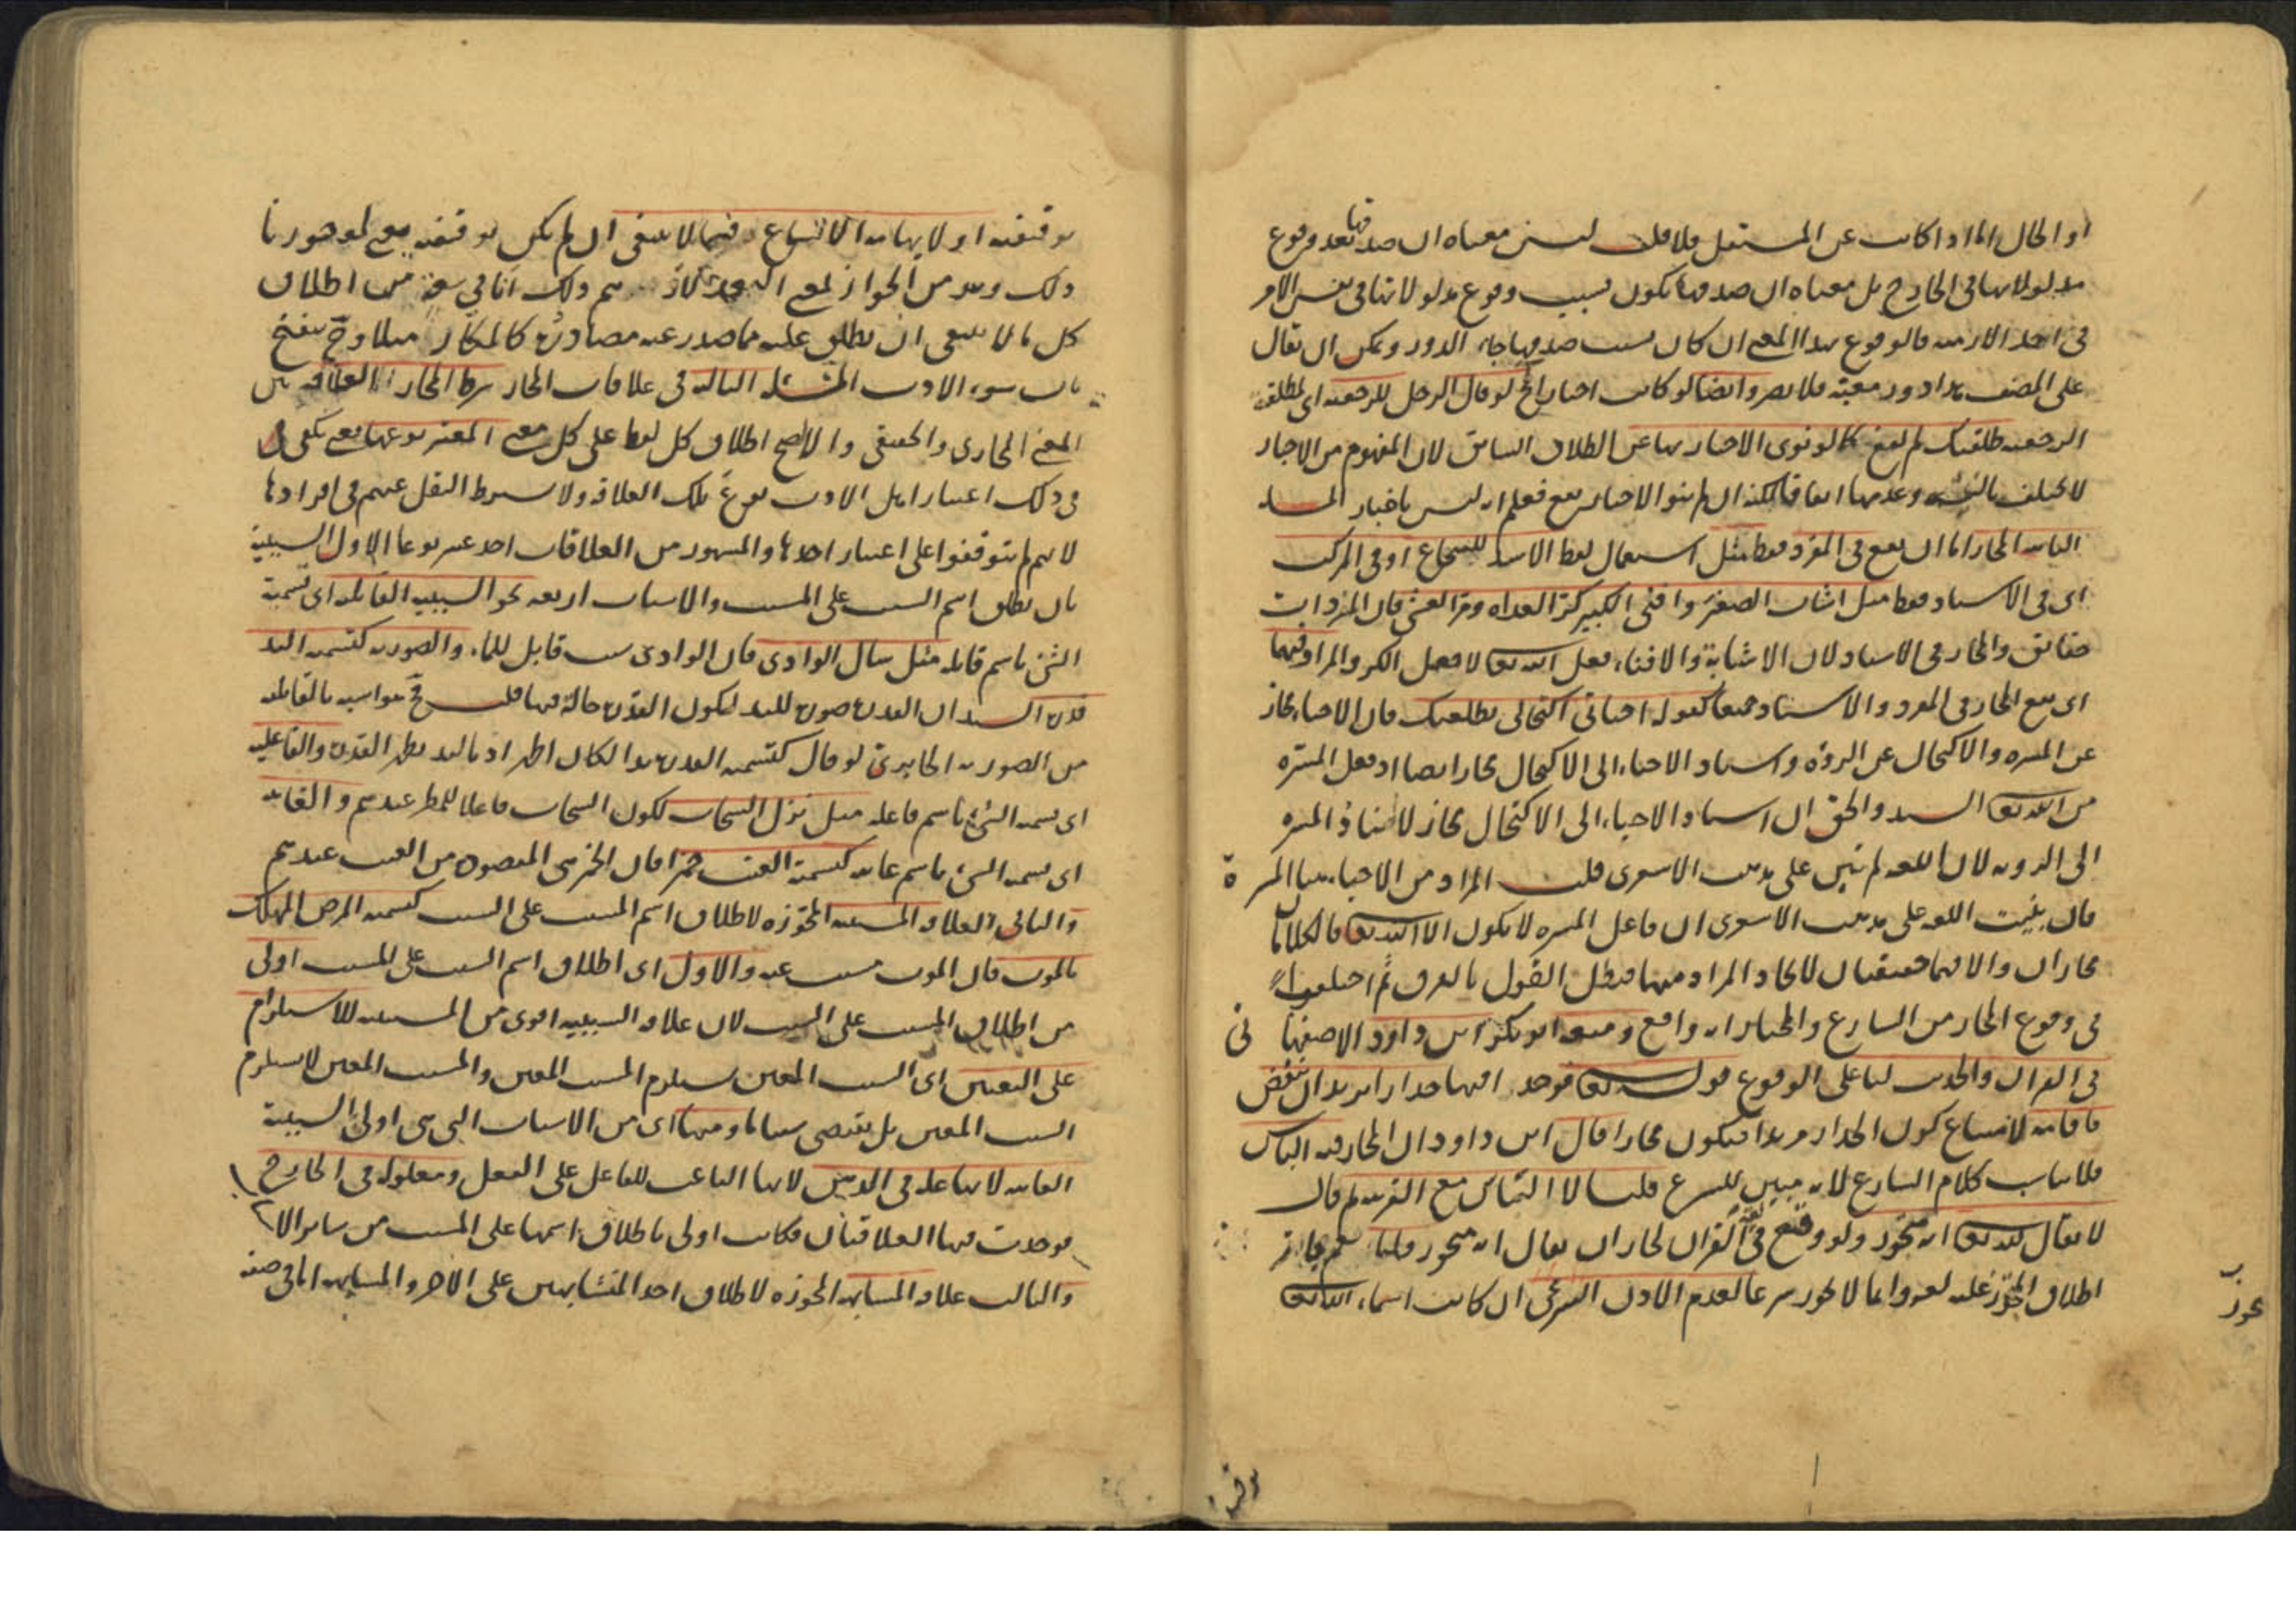 او الحال اما اذا كانت عن المستقبل فلا قلت ليس معناه ان صدقها بعد وقوع
مدلولاتها في الخارج بل معناه ان صدقها يكون بسبب وقوع مدلولاتها في نفس الامر
في احد الازمنة فالوقوع بهذا المعنى ان كان بسبب صدقها جاء الدور ويمكن ان يقال
على المصنف هذا دور معية فلا يضر وايضا لو كانت اخبارا لو قال الرجل للرجعية اى لمطلقته
الرجعية طلقتك لم يقع كما لو نوى الاخبار بها عن الطلاق السابق لان المفهوم من الاخبار
لا يختلف بالنية وعدمها اتفاقا لكنه ان لم ينو الاخبار يقع فعلم انه ليس باخبار المسئلة
الثانية المجاز اما ان يقع في المفرد فقط مثل استعمال لفظ الاسد للشجاع او في المركب
اى في الاسناد فقط مثل اشاب الصغير وافنى الكبير كر الغداة ومر العشي فان المفردات
حقائق والمجاز في الاسناد لان الاشابة والافناء بفعل الله تعالى لا بفعل الكر والمر او فيهما
اى يقع المجاز في المفرد والاسناد جميعا كقوله احياني اكتحالي بطلعتك فان الاحياء مجاز
عن المسرة والاكتحال عن الرؤية واسناد الاحياء الى الاكتحال مجاز ايضا اذ فعل المسرة
من الله تعالى السيد والحق ان اسناد الاحياء الى الاكتحال مجاز لاسناد المسرة
الى الروية لان اللغة لم تبن على مذهب الاشعرى قلت المراد من الاحياء هنا المسرة
فان بنيت اللغة على مذهب الاشعرى ان فاعل المسرة لا يكون الا الله تعالى فالكلامان
مجازان والا فهما حقيقتان لاتحاد المراد منهما فبطل القول بالفرق ثم اختلفوا
في وقوع المجاز من الشارع والمختار انه واقع ومنعه ابو بكر ابن داود الاصفهاني
في القران والحديث لنا على الوقوع قوله تعالى فوجدا فيها جدارا يريد ان ينقض
فاقامه لامتناع كون الجدار مريدا فيكون مجازا قال ابن داود ان المجاز فيه التباس
فلا يناسب كلام الشارع لانه مبين للشرع قلنا لا التباس مع القرينة قال
لا يقال لله تعالى انه متجوز ولو وقع في القران لجاز ان يقال انه متجوز قلنا نعم جاز
اطلاق المتجوز عليه لغة وانما لا يجوز شرعا لعدم الاذن الشرعى ان كانت اسماء الله تعالى
توقيفية او لايهامه الاتساع فيما لا ينبغى ان لم يكن توقيفية
ذلك من الجواز ثم ذلك من اطلاق
كل ما لا ينبغى ان يطلق عليه مما صدر عنه مصادره كالمكار مثلا
باب سوء الادب المسئلة الثالثة في علاقات المجاز شرط المجاز العلاقة بين
المعنى المجازى والحقيقى والا لصح اطلاق كل لفظ على كل معنى المعتبر نوعها يعنى يكفى
في ذلك اعتبار اهل الادب نوع تلك العلاقة ولا يشترط النقل عنهم في افرادها
لانهم لم يتوقفوا على اعتبار احدها والمشهور من العلاقات احد عشر نوعا الاول السببية
بان يطلق اسم السبب على المسبب والاسباب اربعة نحو السببية القابلية اى تسمية
الشئ باسم قابله مثل سال الوادى فان الوادى سبب قابل للماء والصورية كتسمية اليد
قدرة السيد ان القدرة صورة لليد لكون القدرة حالة فيها قلت ح مواسبه بالقابلية
من الصورية الخابردى لو قال كتسمية القدرة يدا لكان اطراد باليد يظهر القدرة والفاعلية
اى تسمية الشئ باسم فاعله مثل نزل السحاب لكون السحاب فاعلا للمطر عندهم والغائية
اى تسمية الشئ باسم غايته كتسمية العنب خمرا فان الخمر هى المقصودة من العنب عندهم
والثانى العلاقة المسببية المجوزة لاطلاق اسم المسبب على السبب كتسمية المرض المهلك
بالموت فان الموت مسبب عنه والاول اى اطلاق اسم السبب على المسبب اولى
من اطلاق المسبب على السبب لان علاقة السببية اقوى من المسببية للاستلزام
على التعيين اى السبب المعين يستلزم المسبب المعين والمسبب المعين لا يستلزم
السبب المعين بل يقتضى سببا ما ومنها اى من الاسباب التى هى اولى السببية
الغائية لانها علة في الذهن لانها الباعث للفاعل على الفعل ومعلولة في الخارج
فوجدت فيها العلاقتان فكانت اولى باطلاق اسمها على المسبب من سائر الا
والثالث علاقة المشابهة المجوزة لاطلاق احد المتشابهين على الاخر والمشابهة اما في صفة